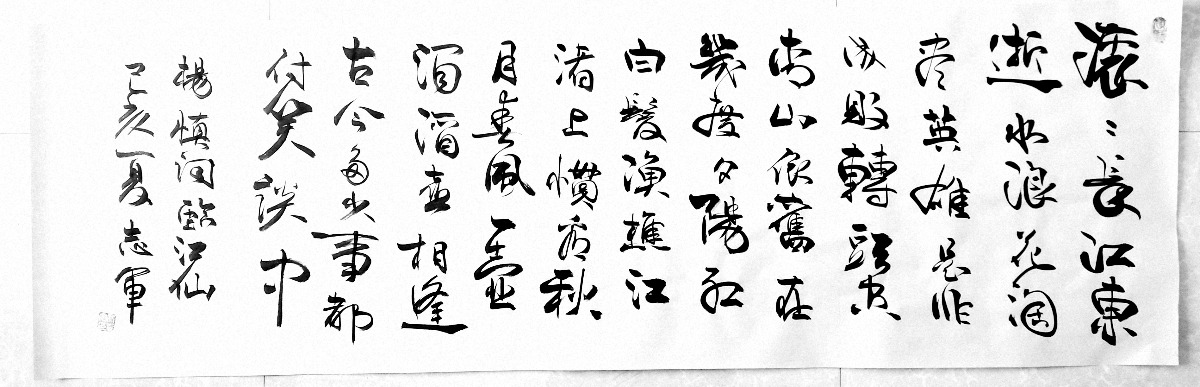 滚〻長江東
逝水浪花淘
尽英雄是非
成敗轉頭空
青山依舊在
幾度夕陽紅
白髮漁樵江
渚上慣看秋
月春風一壺
濁酒喜相逢
古今多少事都
付笑談中
楊慎词臨江仙
己亥夏志軍